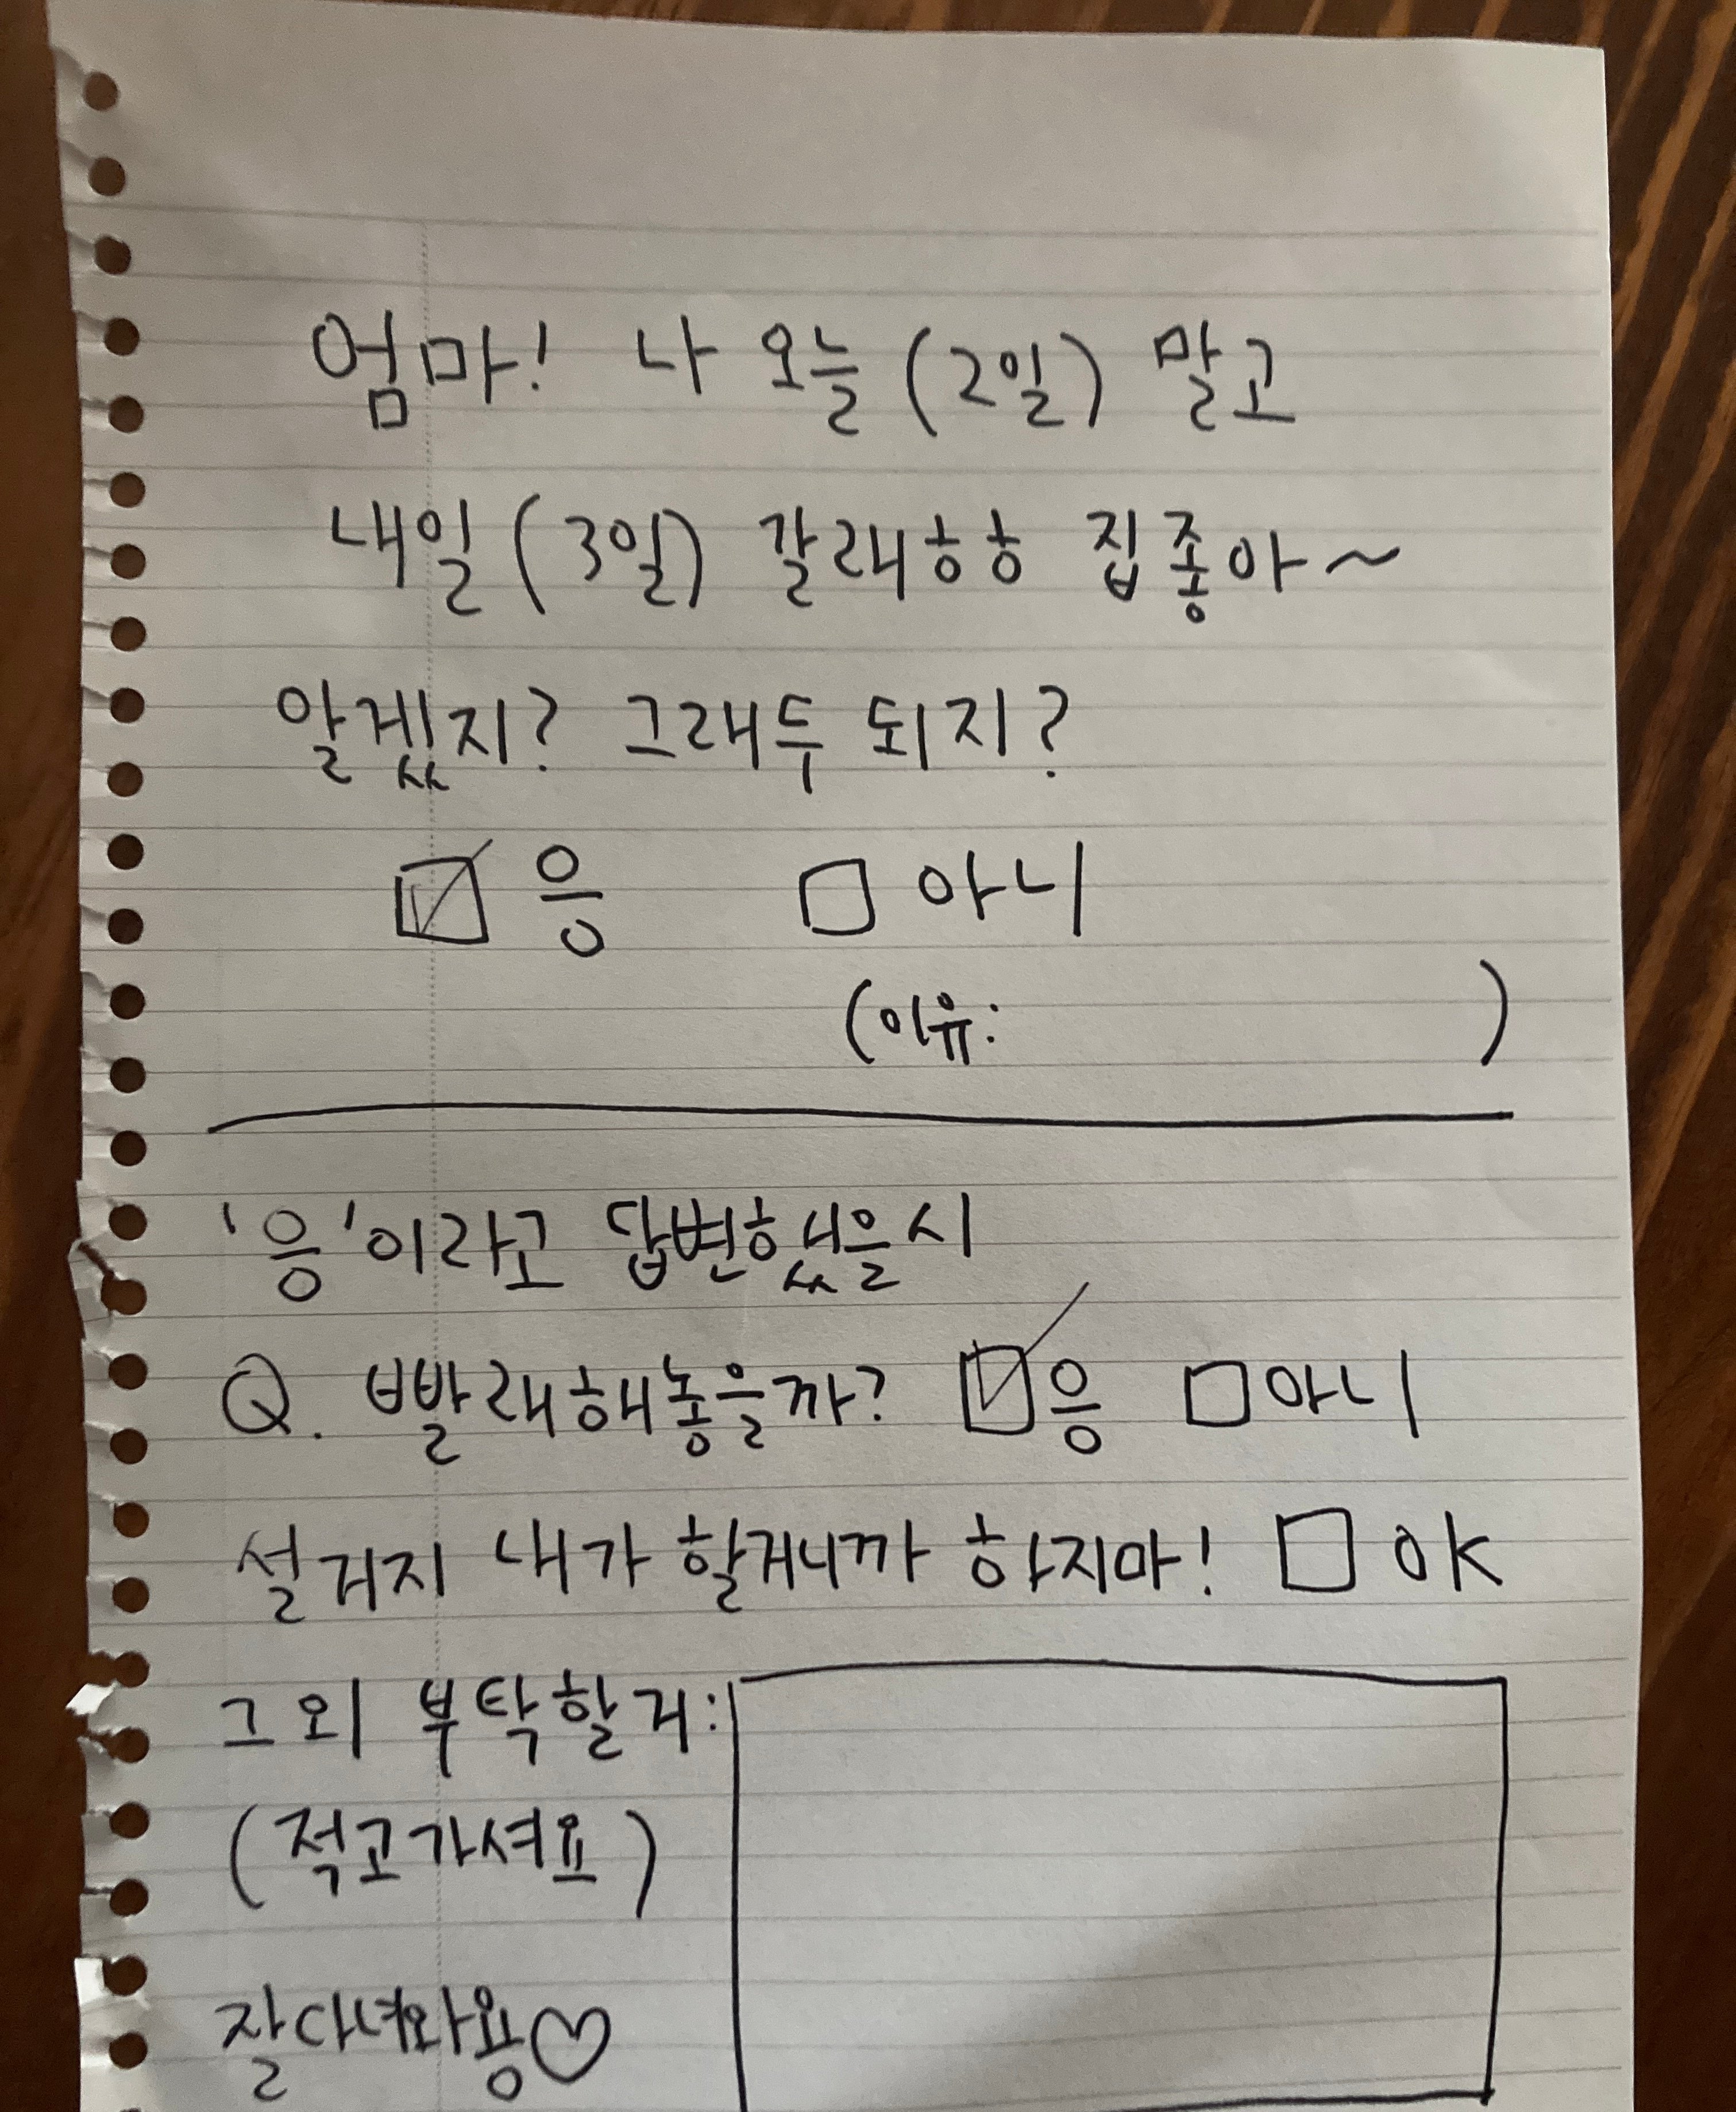 엄마! 나 오늘 (2일) 말고
내일 (3일) 갈래ㅎㅎ 집좋아~
알겠지? 그래두 되지?
☑ 응 □ 아니
(이유: )
'응'이라고 답변했을시
Q. 빨래해놓을까? ☑응 □아니
설거지 내가 할거니까 하지마! □ OK
그 외 부탁할거:
(적고가셔요)
잘다녀와용♡